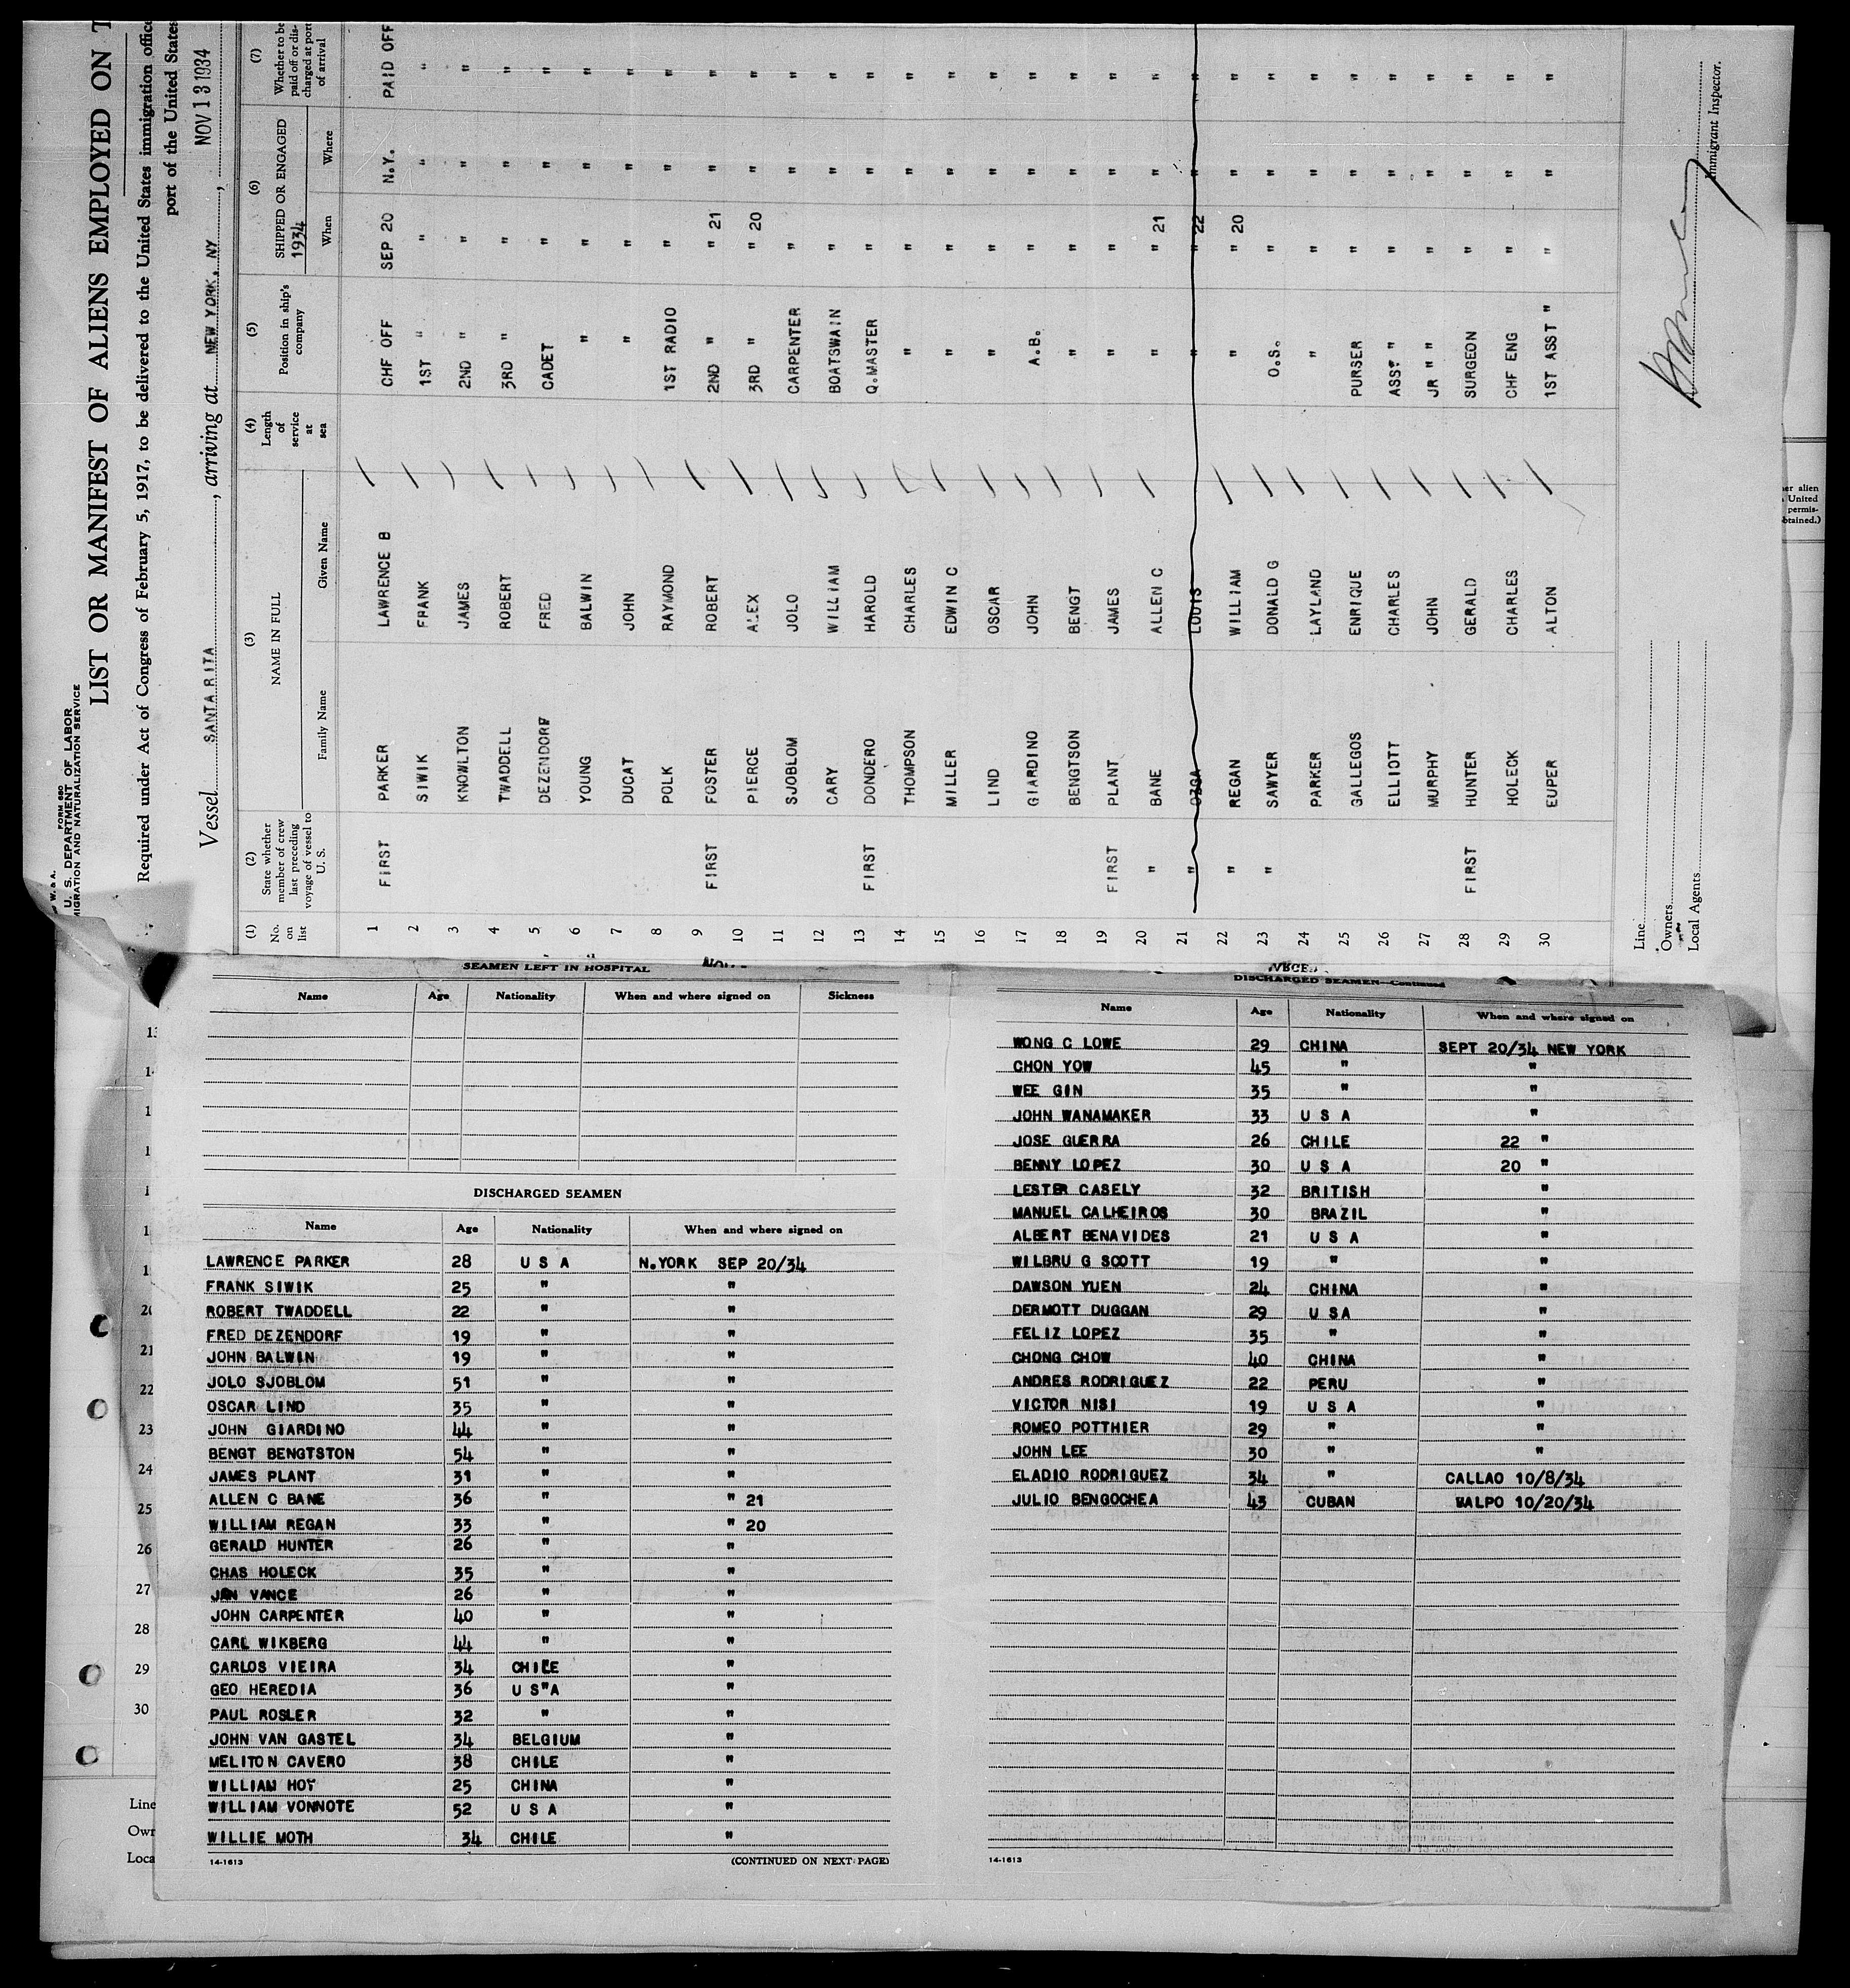 W. & A.
FORM 680
U. S. DEPARTMENT OF LABOR
MIGRATION AND NATURALIZATION SERVICE
LIST OR MANIFEST OF ALIENS EMPLOYED ON T
Required under Act of Congress of February 5, 1917, to be delivered to the United States immigration office
port of the United States
Vessel SANTA RITA, arriving at NEW YORK. NY, NOV 13 1934
(1) No. on list (2) State whether member of crew last preceding voyage of vessel to U. S. (3) NAME IN FULL Family Name Given Name (4) Length of service at sea (5) Position in ship's company (6) SHIPPED OR ENGAGED 1934 When Where (7) Whether to be paid off or discharged at port of arrival
1 FIRST PARKER LAWRENCE B CHF OFF SEP 20 N.Y. PAID OFF
2 SIWIK FRANK 1ST " " " "
3 KNOWLTON JAMES 2ND " " " "
4 TWADDELL ROBERT 3RD " " " "
5 DEZENDORF FRED CADET " " "
6 YOUNG BALWIN " " " "
7 DUCAT JOHN " " " "
8 POLK RAYMOND 1ST RADIO " " "
9 FIRST FOSTER ROBERT 2ND " " 21 " "
10 PIERCE ALEX 3RD " " 20 " "
11 SJOBLOM JOLO CARPENTER " " "
12 CARY WILLIAM BOATSWAIN " " "
13 FIRST DONDERO HAROLD Q.MASTER " " "
14 THOMPSON CHARLES " " " "
15 MILLER EDWIN C " " " "
16 LIND OSCAR " " " "
17 GIARDINO JOHN A.B. " " "
18 BENGTSON BENGT " " " "
19 FIRST PLANT JAMES " " " "
20 " BANE ALLEN C " " 21 " "
21 " LOUIS " " 22 " "
22 " REGAN WILLIAM " " 20 " "
23 " SAWYER DONALD G O.S. " " "
24 PARKER LAYLAND " " " "
25 GALLEGOS ENRIQUE PURSER " " "
26 ELLIOTT CHARLES ASST " " " "
27 MURPHY JOHN JR " " " " "
28 FIRST HUNTER GERALD SURGEON " " "
29 HOLECK CHARLES CHF ENG " " "
30 EUPER ALTON 1ST ASST " " " "
Line
Owners
Local Agents
Immigrant Inspector.
er alien
United
permis-
btained.)
SEAMEN LEFT IN HOSPITAL
Name Age Nationality When and where signed on Sickness
DISCHARGED SEAMEN
Name Age Nationality When and where signed on
LAWRENCE PARKER 28 U S A N.YORK SEP 20/34
FRANK SIWIK 25 " "
ROBERT TWADDELL 22 " "
FRED DEZENDORF 19 " "
JOHN BALWIN 19 " "
JOLO SJOBLOM 51 " "
OSCAR LIND 35 " "
JOHN GIARDINO 44 " "
BENGT BENGTSTON 54 " "
JAMES PLANT 31 " "
ALLEN C BANE 36 " " 21
WILLIAM REGAN 33 " " 20
GERALD HUNTER 26 " "
CHAS HOLECK 35 " "
JAN VANCE 26 " "
JOHN CARPENTER 40 " "
CARL WIKBERG 44 " "
CARLOS VIEIRA 34 CHILE "
GEO HEREDIA 36 U S"A "
PAUL ROSLER 32 " "
JOHN VAN GASTEL 34 BELGIUM "
MELITON CAVERO 38 CHILE "
WILLIAM HOY 25 CHINA "
WILLIAM VONNOTE 52 U S A "
WILLIE MOTH 34 CHILE "
14-1613 (CONTINUED ON NEXT PAGE)
DISCHARGED SEAMEN—Continued
Name Age Nationality When and where signed on
WONG C LOWE 29 CHINA SEPT 20/34 NEW YORK
CHON YOW 45 " "
WEE GIN 35 " "
JOHN WANAMAKER 33 U S A "
JOSE GUERRA 26 CHILE 22 "
BENNY LOPEZ 30 U S A 20 "
LESTER CASELY 32 BRITISH "
MANUEL CALHEIROS 30 BRAZIL "
ALBERT BENAVIDES 21 U S A "
WILBRU G SCOTT 19 " "
DAWSON YUEN 24 CHINA "
DERMOTT DUGGAN 29 U SA "
FELIZ LOPEZ 35 " "
CHONG CHOW 40 CHINA "
ANDRES RODRIGUEZ 22 PERU "
VICTOR NISI 19 U S A "
ROMEO POTTHIER 29 " "
JOHN LEE 30 " "
ELADIO RODRIGUEZ 34 " CALLAO 10/8/34
JULIO BENGOCHEA 43 CUBAN VALPO 10/20/34
14-1613
21
22
23
24
25
26
27
28
29
30
Line
Owr
Loca